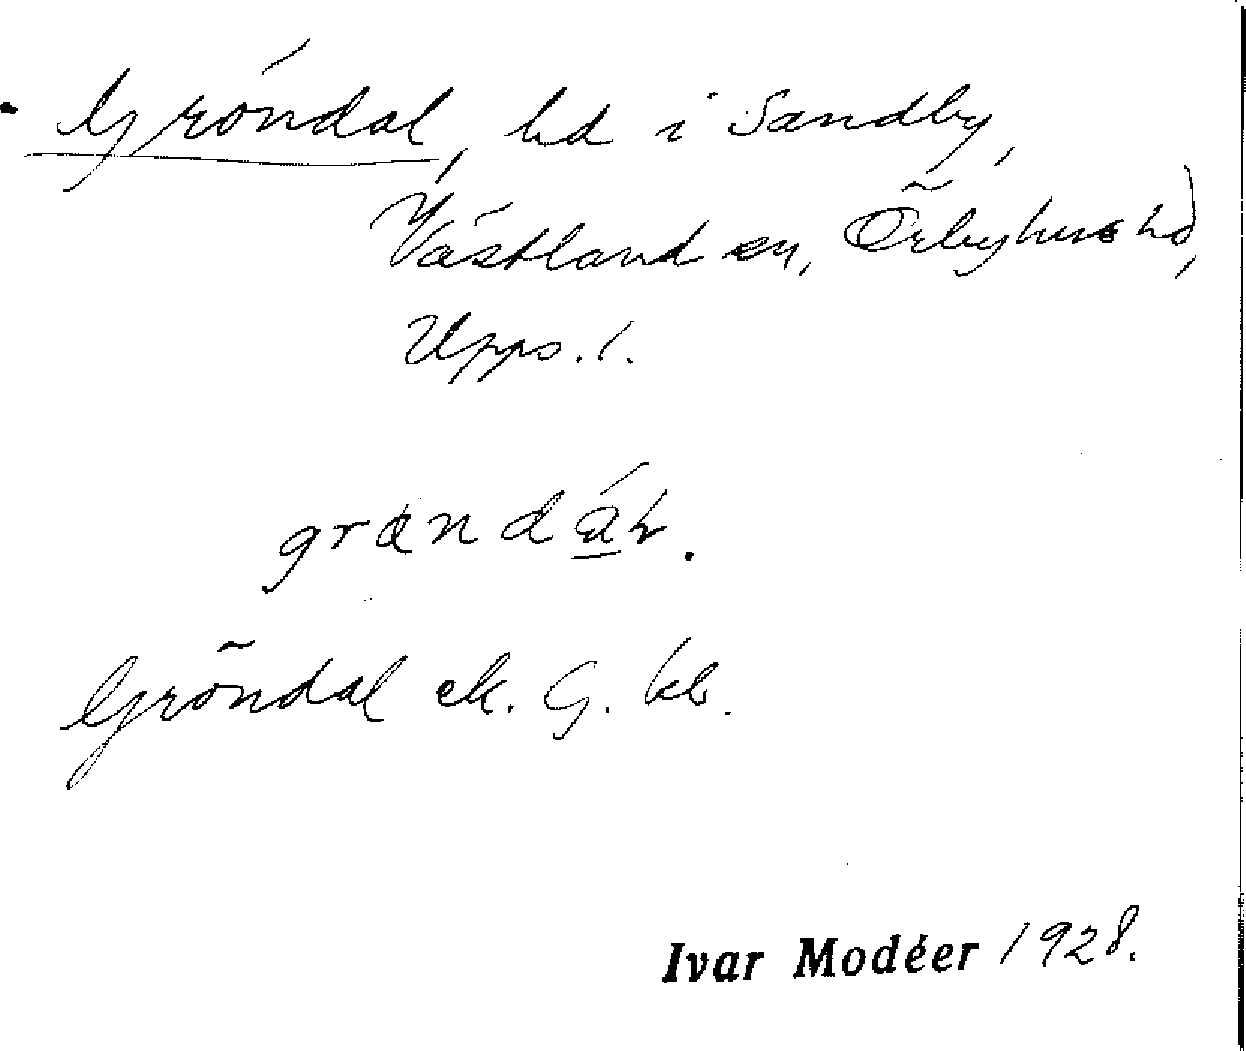 Gröndal, hd i Sandby,
Västland sn, Örbyhus hd,
Upps. l.
Gröndal ek. G. kb.
Ivar Modéer 1928.